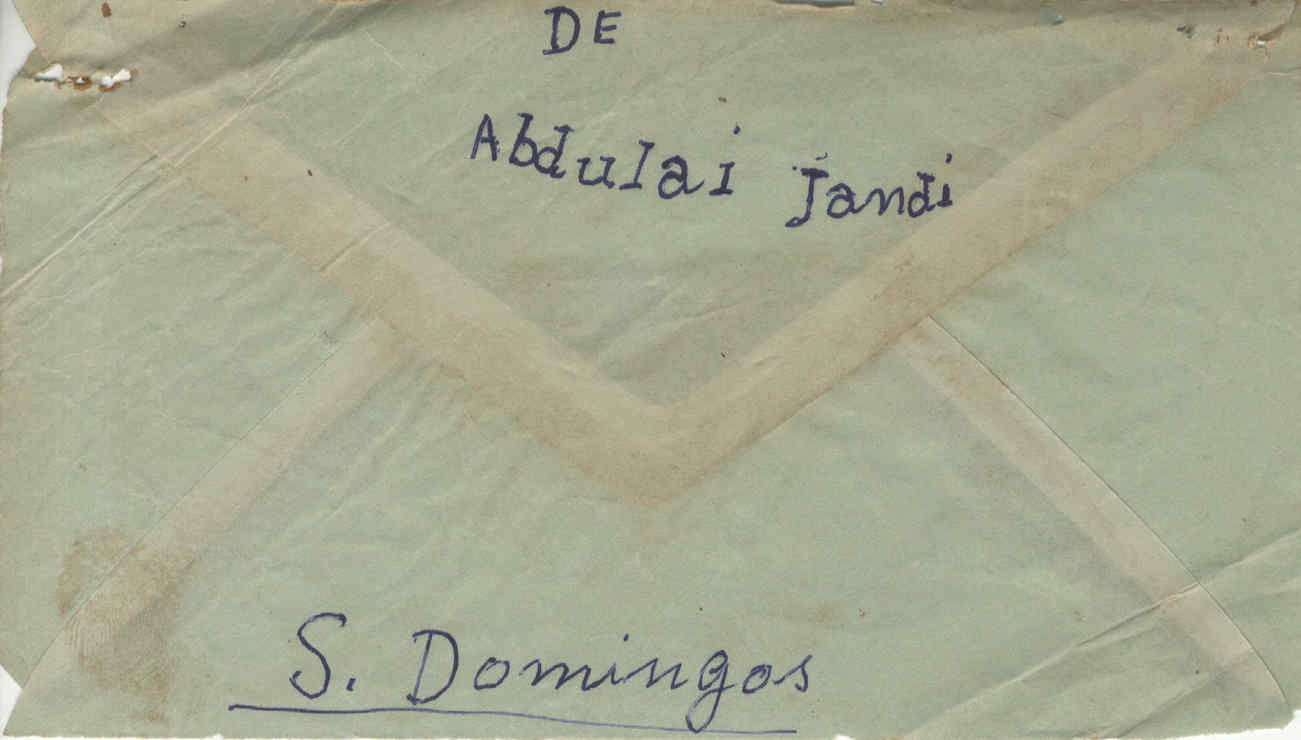 DE
Abdulai Jandi
S. Domingos